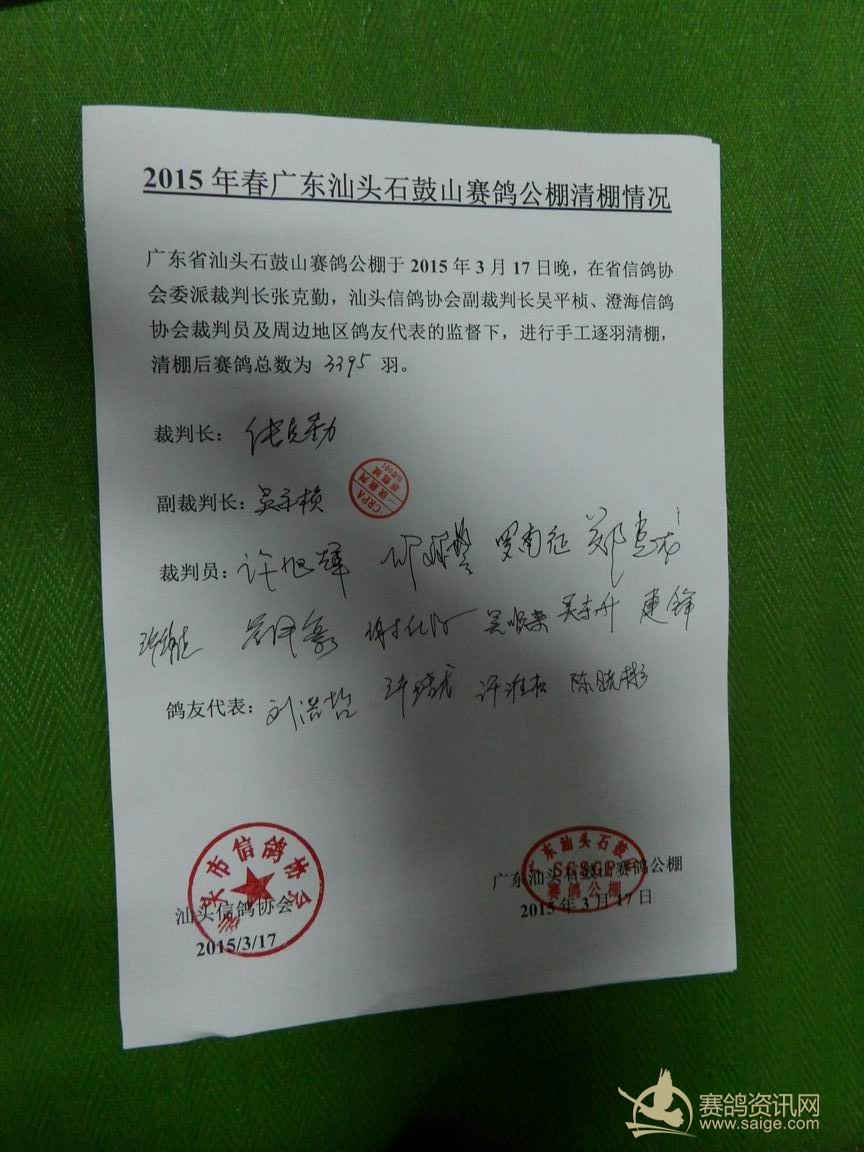 2015 年春广东汕头石鼓山赛鸽公棚清棚情况
广东省汕头石鼓山赛鸽公棚于 2015 年 3 月 17 日晚，在省信鸽协
会委派裁判长张克勤，汕头信鸽协会副裁判长吴平桢、澄海信鸽
协会裁判员及周边地区鸽友代表的监督下，进行手工逐羽清棚，
清棚后赛鸽总数为 3395 羽。
裁判长： 张克勤
副裁判长：吴平桢
CRPA
一级裁判
裁判员：许旭辉 罗南征
吴顺荣 吴东升
鸽友代表：刘浩哲 陈晓彬
汕头市信鸽协会
汕头信鸽协会
2015/3/17
广东汕头石鼓山
赛鸽公棚
广东汕头石鼓山赛鸽公棚
2015 年 3 月 17 日
赛鸽资讯网
www.saige.com